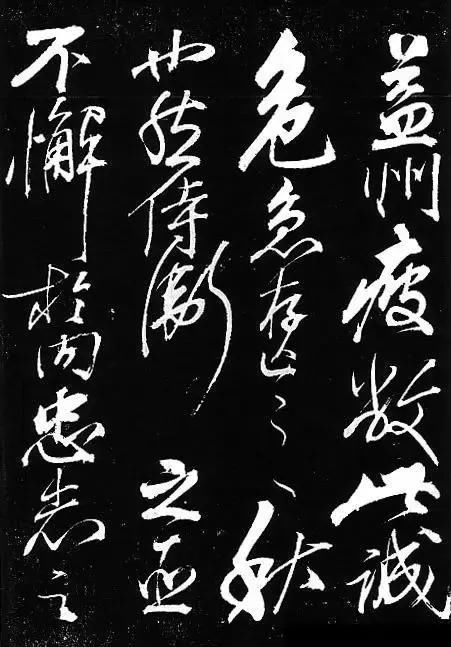 益州疲敝此誠
危急存亡之秋
也然侍衛之臣
不懈於內忠志之